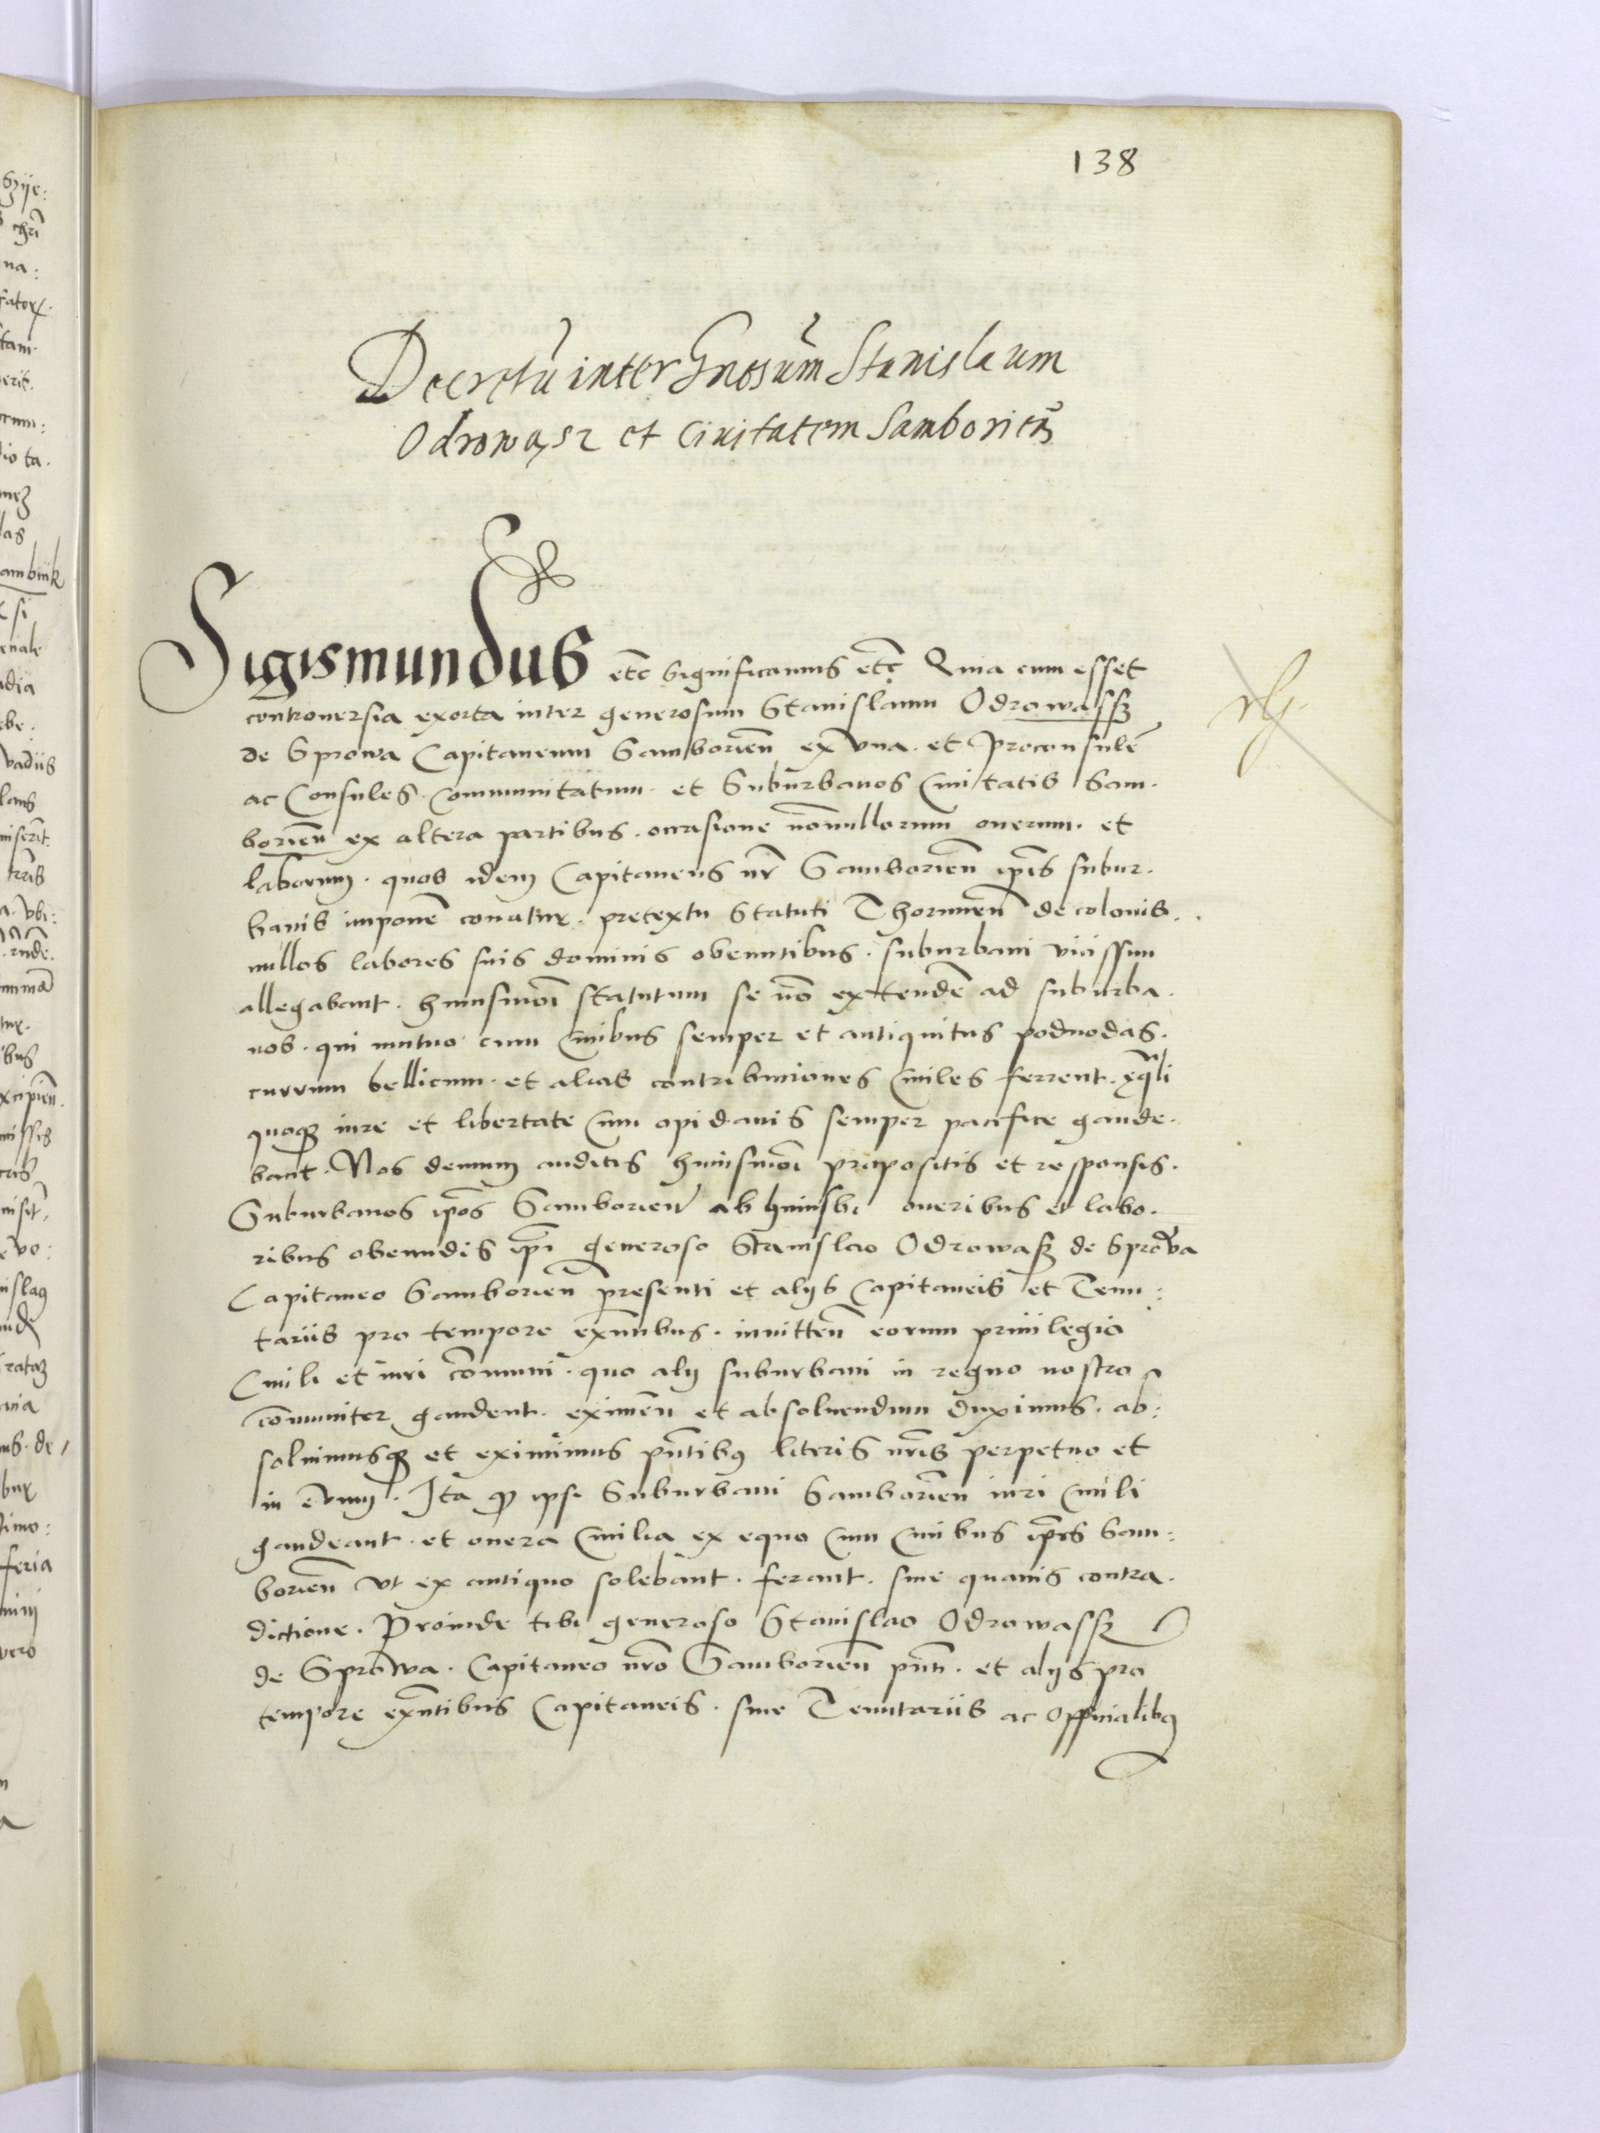 138
Decretū inter Gnosum Stanislaum
Odrowąsz et Ciuitatem Samborien̄
Sigismundus etc̄ Significamus etc̄ Quia cum esset
controuersia exorta inter generosum Stanislaum Odrowassz
de Sprowa Capitaneum Samborien̄ ex vna. et Proconsulē
ac Consules. Communitatum. et Suburbanos Ciuitatis Sam.
borien̄ ex altera partibus. occasione nōnullorum onerum. et
laborum. quos idem Capitaneus nr̄ Samborien̄ ip̄is subur.
banis imponē conatur. pretextu Statuti Thorunien̄ de colonis.
nullos labores suis dominis obeuntibus. suburbani vicissim
allegabant. huiusmōi statutum se nō extendē ad suburba.
nos. qui mutuo cum Ciuibus semper et antiquitus podwodas.
currum bellicum. et alias contribuciones Ciuiles ferrent.
quoq̨ iure et libertate cum opidanis semper pacifice gaude.
bant. Nos demum auditis huiusmōi propositis et responsis.
Suburbanos ip̄os Samborien̄ ab huiusōi oneribus et labo.
ribus obeundis ip̄i generoso Stanislao Odrowasz de Sprowa
Capitaneo Samborien̄ presenti et alijs Capitaneis et Tenu:
tariis pro tempore exn̄tibus. innitten̄ eorum priuilegio
Ciuili et iuri cōmuni. quo alij suburbani in regno nostro
cōmuniter gaudent. eximen̄ et absoluendum duximus. ab:
soluimusq̨ et eximimus pn̄tibus literis nr̄is perpetuo et
in ēuum. Ita q̨ ipsi Suburbani Samborien̄ iuri Ciuili
gaudeant. et onera Ciuilia ex equo cum Ciuibus ip̄is Sam:
borien̄ vt ex antiquo solebant. ferant. sine quauis contra.
dictione. Proinde tibi generoso Stanislao Odrowassz
de Sprowa. Capitaneo nr̄o Samborien̄ pn̄ti. et alijs pro
tempore exn̄tibus Capitaneis. siue Tenutariis ac Officialibus